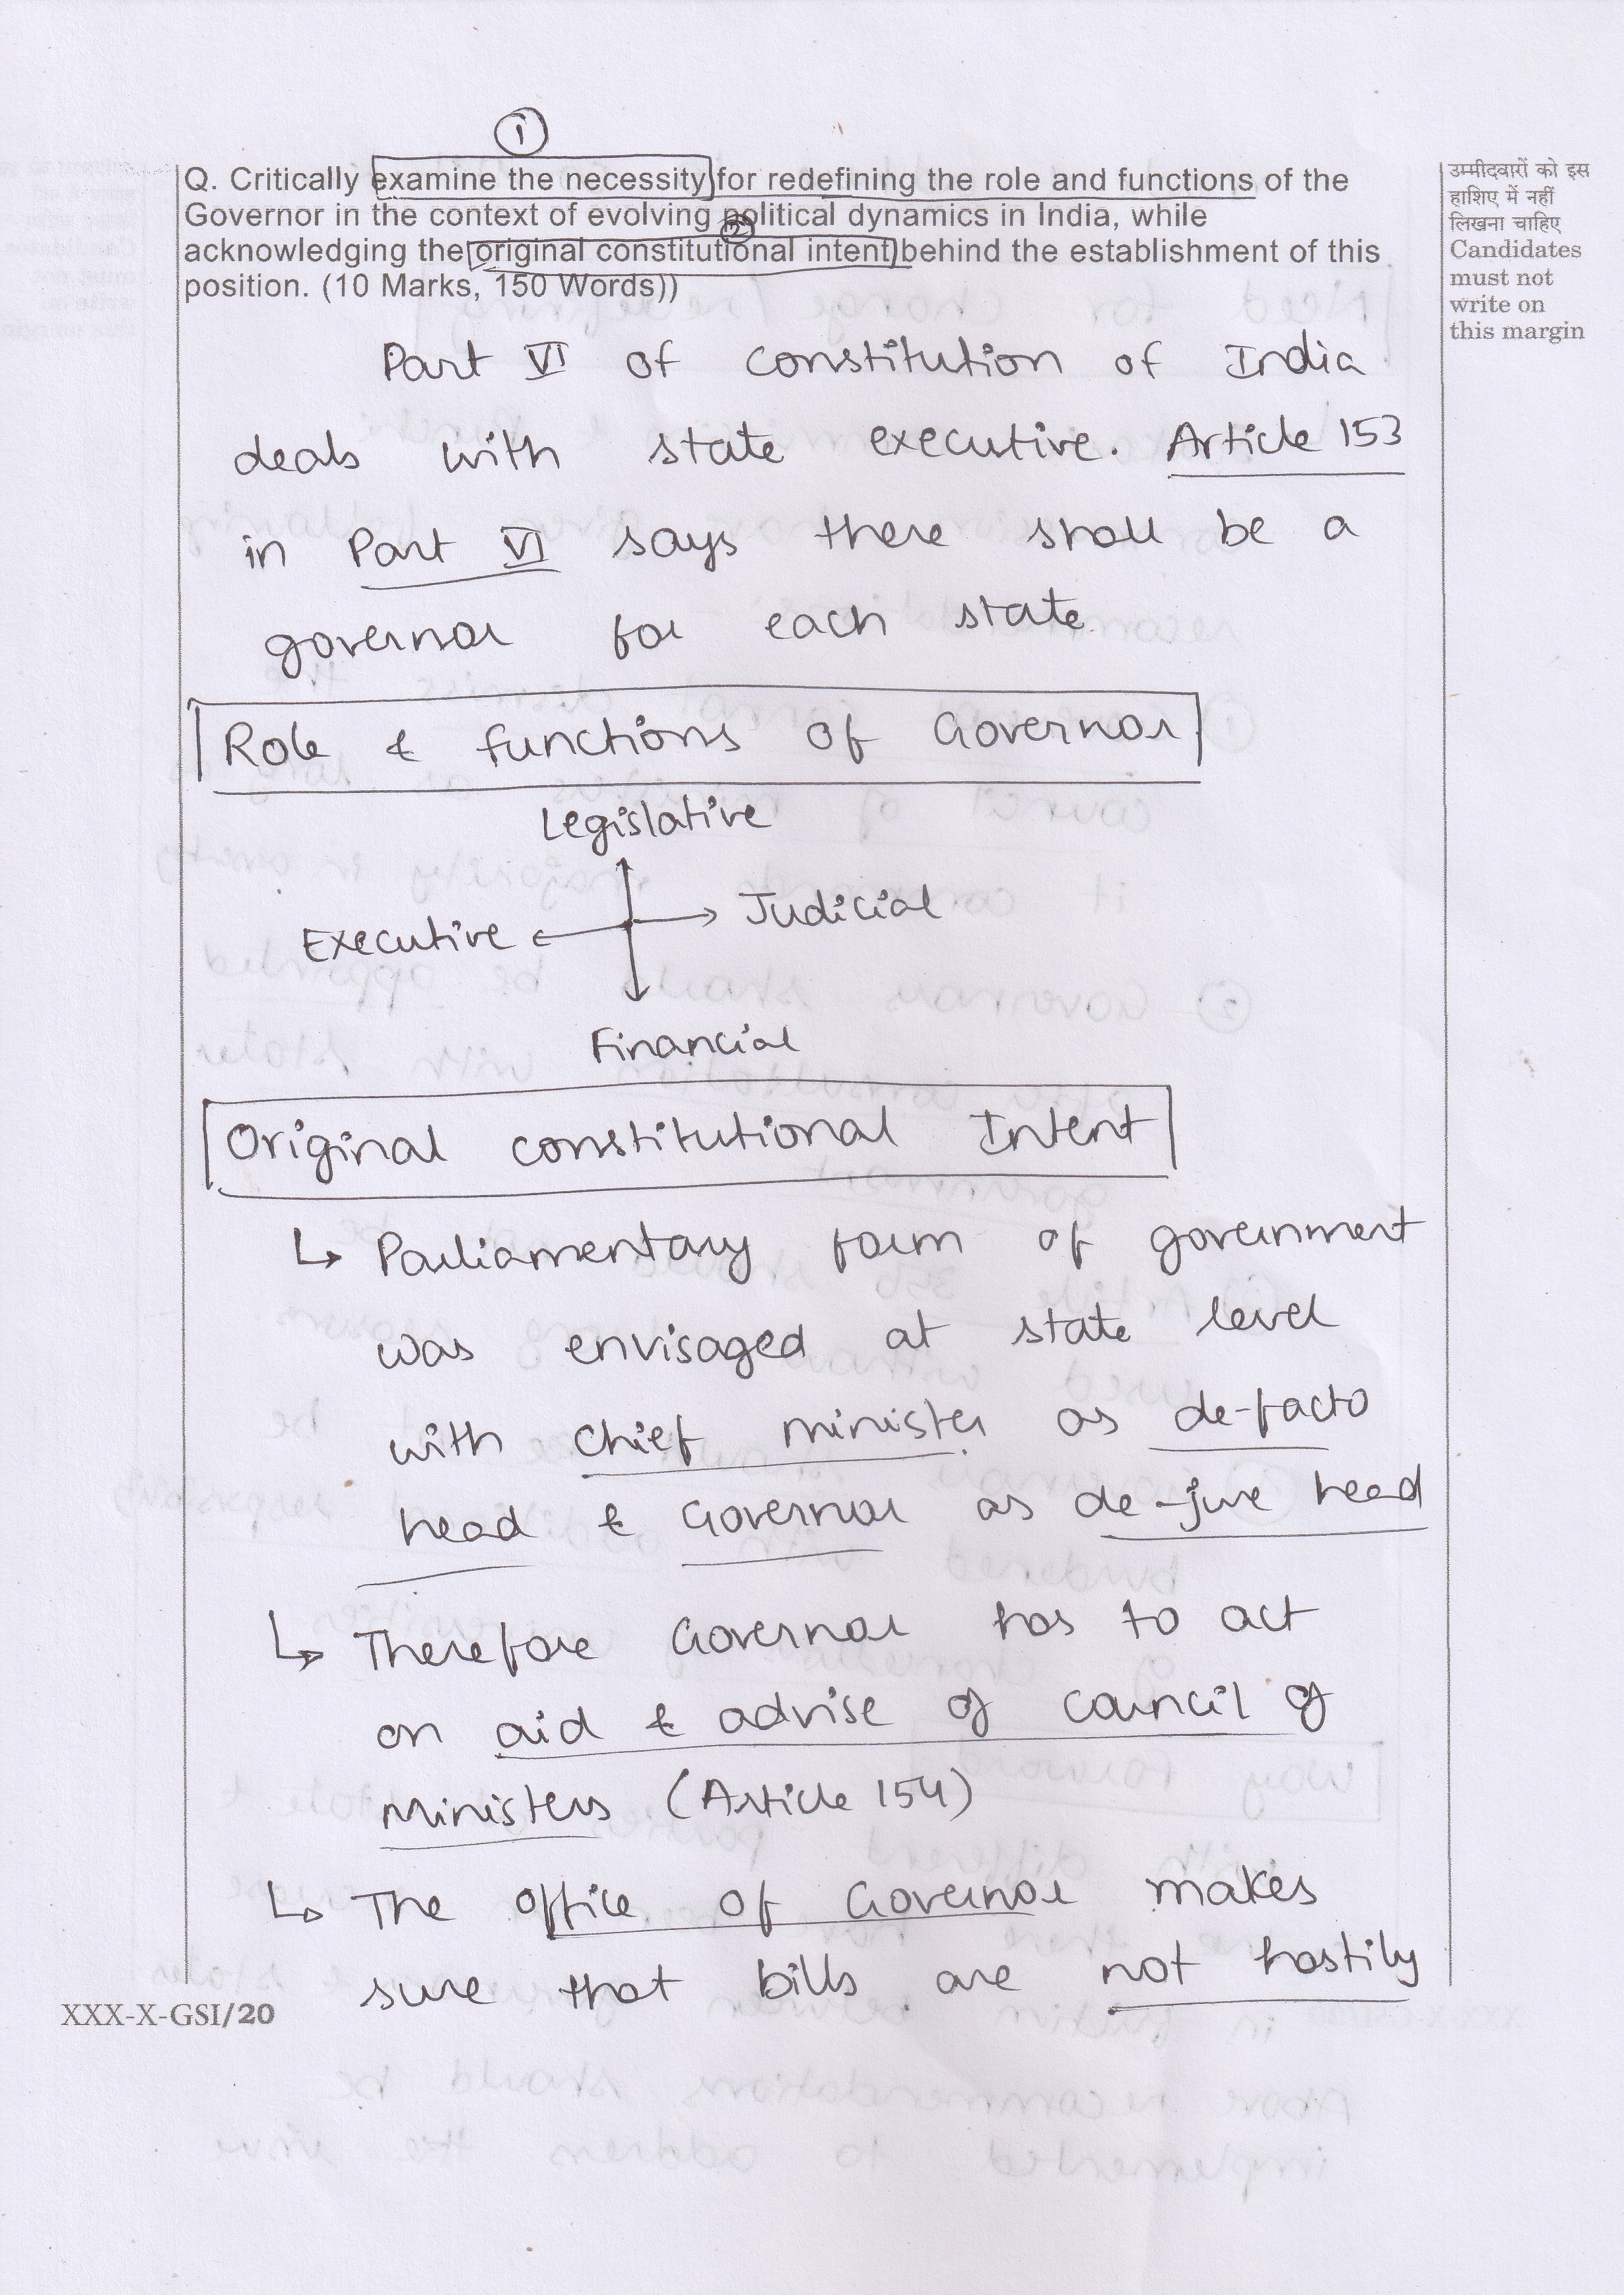 ①
Q. Critically examine the necessity for redefining the role and functions of the
Governor in the context of evolving political dynamics in India, while
②
acknowledging the original constitutional intent behind the establishment of this
position. (10 Marks, 150 Words))
उम्मीदवारों को इस
हाशिए में नहीं
लिखना चाहिए
Candidates
must not
write on
this margin
Part VI of constitution of India
deals with state executive. Article 153
in Part VI says there shall be a
governor for each state.
Role & functions of Governor
Legislative
Executive
Judicial
Financial
Original constitutional Intent
↳ Parliamentary form of government
was envisaged at state level
with Chief minister as de-facto
head & Governor as de-jure head
↳ Therefore Governor has to act
on aid & advise of council of
Ministers (Article 154)
↳ The office of Governor makes
sure that bills are not hastily
XXX-X-GSI/20